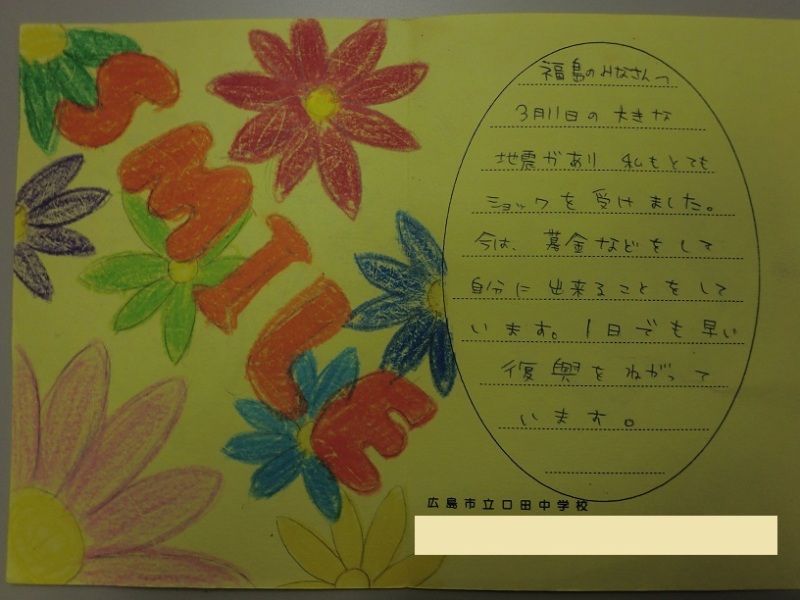 SMILE
福島のみなさんへ
3月11日の大きな
地震があり 私もとても
ショックを受けました。
今は、募金などをして
自分に出来ることをして
います。1日でも早い
復興をねがって
います。
広島市立口田中学校